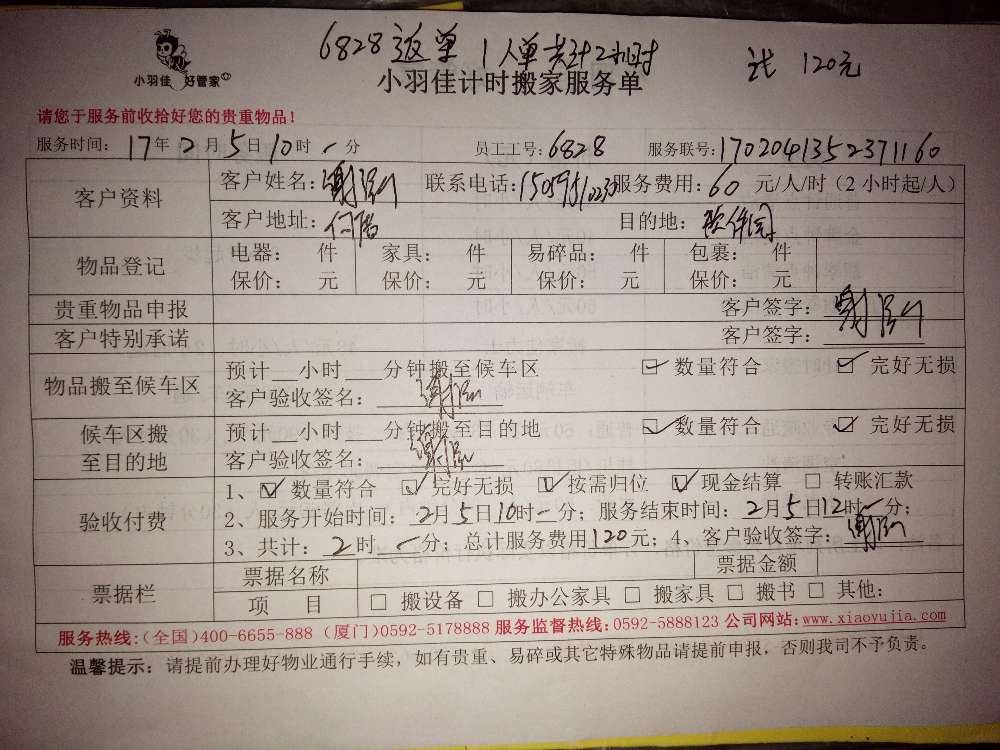 6828返单 1人单共计2小时 计 120元
小羽佳 好管家
小羽佳计时搬家服务单
请您于服务前收拾好您的贵重物品!
服务时间: 17年2月5日10时-分 员工工号:6828 服务联号:1702041352371160
客户资料 客户姓名: 联系电话: 服务费用:60 元/人/时(2小时起/人)
客户地址: 目的地:软件园
物品登记 电器: 件 家具: 件 易碎品: 件 包裹: 件
保价: 元 保价: 元 保价: 元 保价: 元
贵重物品申报 客户签字:
客户特别承诺 客户签字:
物品搬至候车区 预计__小时___分钟搬至候车区 ☑ 数量符合 ☑ 完好无损
客户验收签名:
候车区搬至目的地 预计__小时___分钟搬至目的地 ☑ 数量符合 ☑ 完好无损
客户验收签名:
验收付费 1、☑ 数量符合 ☑ 完好无损 ☑ 按需归位 ☑ 现金结算 □ 转账汇款
2、服务开始时间:2月5日10时-分;服务结束时间:2月5日12时-分;
3、共计:2时-分;总计服务费用120元;4、客户验收签字:
票据栏 票据名称 票据金额
项 目 □ 搬设备 □ 搬办公家具 □ 搬家具 □ 搬书 □ 其他:
服务热线:(全国)400-6655-888 (厦门)0592-5178888 服务监督热线:0592-5888123 公司网站:www.xiaoyujia.com
温馨提示: 请提前办理好物业通行手续,如有贵重、易碎或其它特殊物品请提前申报,否则我司不予负责。